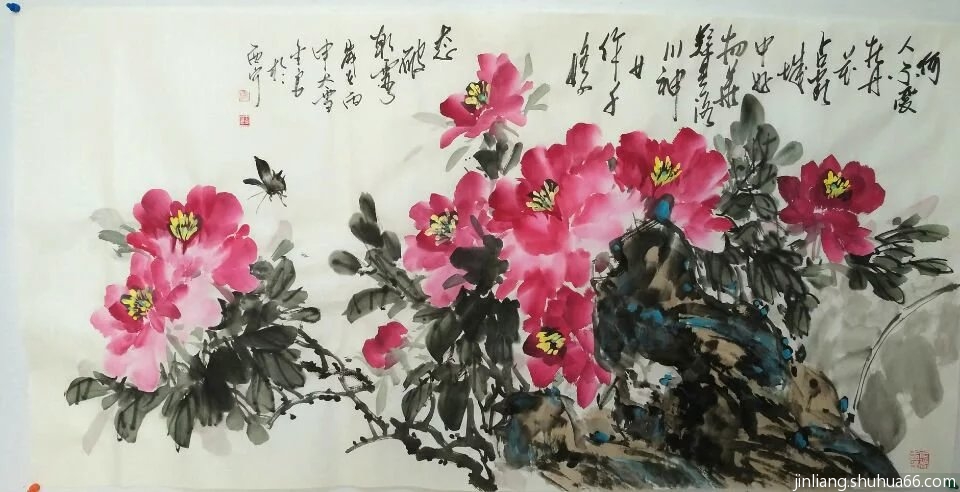 何
人不愛
牡丹
花
占斷
城
中好
物華
疑是洛
川神
女
作千
嬌
態
破
朝霞
歲在丙
申大雪
於
西宁
jinliang.shuhua66.com